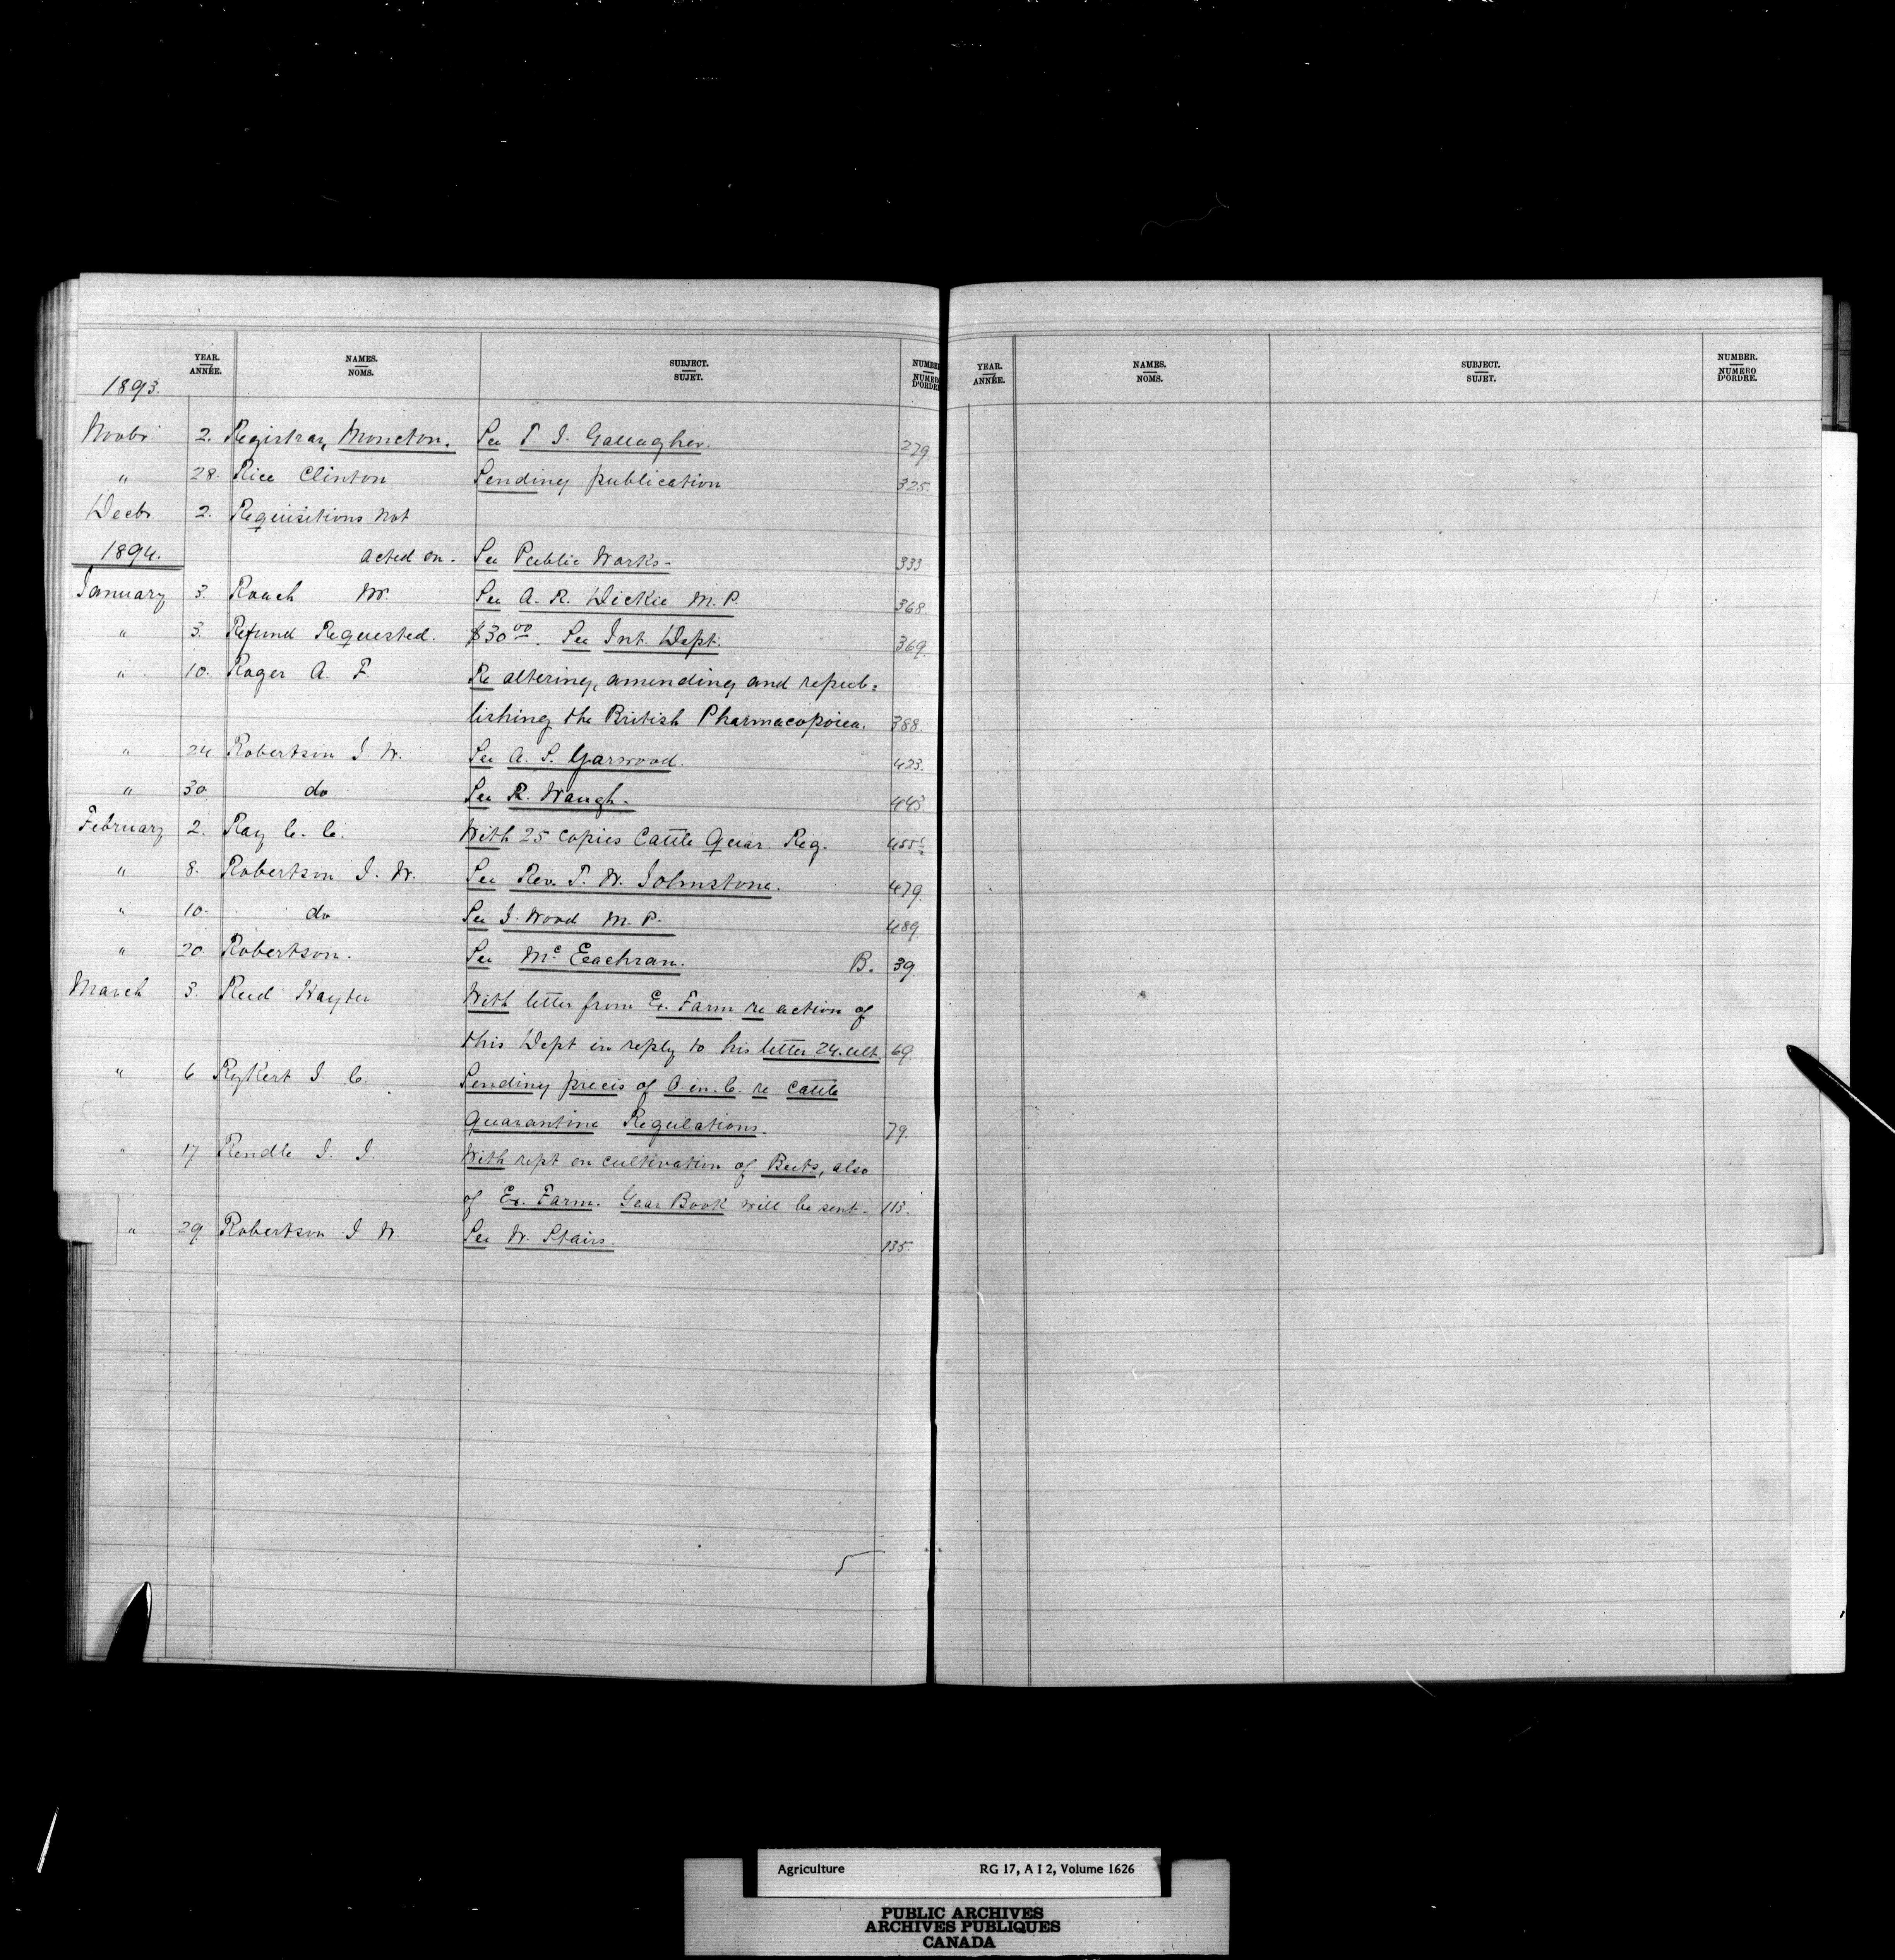 YEAR. NAMES. SUBJECT. NUMBER
ANNÉE. NOMS. SUJET. NUMERO D'ORDRE
1893.
Novbr 2. Registrar, Moncton. See T J. Gallagher. 279.
" 28. Rice Clinton Sending publication 325.
Decbr 2. Requisitions not
1894. acted on. See Public Works. 333
January 3. Roach W. See A. R. Dickie M. P. 368.
" 3. Refund Requested. $30 00. See Int. Dept. 369.
" 10. Roger A. F. Re altering, amending and repub=
lishing the British Pharmacopoiea. 388.
" 24 Robertson J. W. See A. S. Yarwood. 423.
" 30 do See R. Waugh. 443.
February 2. Ray C. C. With 25 copies Cattle Quar. Reg. 455½
" 8. Robertson J. W. See Rev. T. W. Johnstone. 479.
" 10. do See J. Wood M. P. 489.
" 20. Robertson. See Mc Eachran. B. 39
March 3. Reed Hayter With letter from Ex. Farm re action of
this Dept in reply to his letter 24. ult. 69.
" 6 Rykert J. C. Sending precis of O. in. C. re Cattle
Quarantine Regulations. 79.
" 17 Rendle J. J. With rept on cultivation of Beets, also
of Ex. Farm. Year Book will be sent. 113.
" 29. Robertson J W. See W. Stairs. 135.
YEAR. NAMES. SUBJECT. NUMBER.
ANNÉE. NOMS. SUJET. NUMERO D'ORDRE.
Agriculture RG 17, A I 2, Volume 1626
PUBLIC ARCHIVES
ARCHIVES PUBLIQUES
CANADA